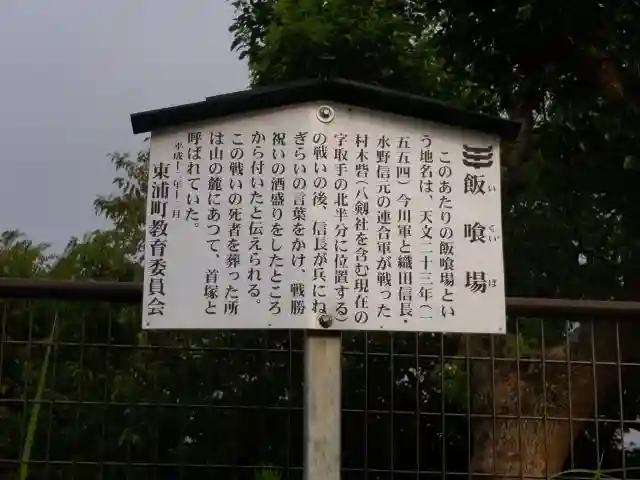 飯喰場
いくいば
このあたりの飯喰場とい
う地名は、天文二十三年(一
五五四)今川軍と織田信長・
水野信元の連合軍が戦った
村木砦(八剱社を含む現在の
字取手の北半分に位置する)
の戦いの後、信長が兵にね
ぎらいの言葉をかけ、戦勝
祝いの酒盛りをしたところ
から付いたと伝えられる。
この戦いの死者を葬った所
は山の麓にあつて、首塚と
呼ばれていた。
平成十三年十二月
東浦町教育委員会